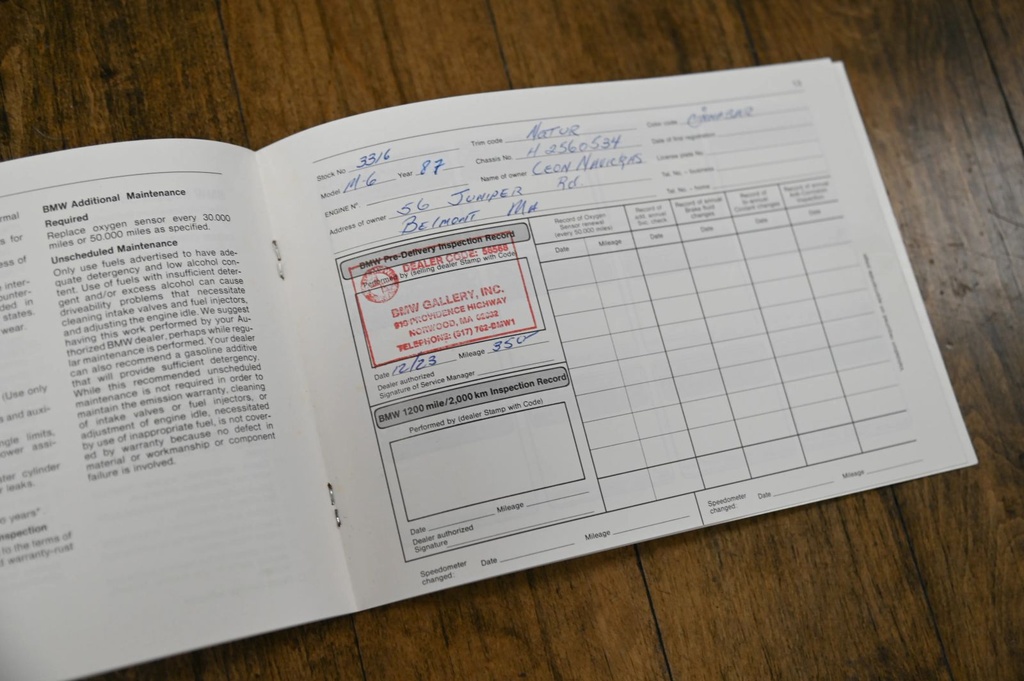 rmal
s for
ess of
e inter-
ounter-
ded in
states.
wear.
(Use only
s and auxi-
ngle limits,
ower assi-
ter cylinder
y leaks.
o years"
nspection
to the terms of
t warranty-rust
BMW Additional Maintenance
Required
Replace oxygen sensor every 30.000
miles or 50.000 miles as specified.
Unscheduled Maintenance
Only use fuels advertised to have ade-
quate detergency and low alcohol con-
tent. Use of fuels with insufficient deter-
gent and/or excess alcohol can cause
driveability problems that necessitate
cleaning intake valves and fuel injectors,
and adjusting the engine idle. We suggest
having this work performed by your Au-
thorized BMW dealer, perhaps while regu-
lar maintenance is performed. Your dealer
can also recommend a gasoline additive
that will provide sufficient detergency.
While this recommended unscheduled
maintenance is not required in order to
maintain the emission warranty, cleaning
of intake valves or fuel injectors, or
adjustment of engine idle, necessitated
by use of inappropriate fuel, is not cover-
ed by warranty because no defect in
material or workmanship or component
failure is involved.
Stock No 3316 Trim code NATUR Color code CINNABAR
Model M-6 Year 87 Chassis No. H 2560534 Date of first registration
ENGINE N°. Name of owner LEON License plate No.
Address of owner 56 JUNIPER Rd. Tel. No. - business
BELMONT MA Tel. No. - home
BMW Pre-Delivery Inspection Record
Performed by (selling dealer Stamp with Code)
DEALER CODE:
BMW GALLERY, INC.
PROVIDENCE HIGHWAY
NORWOOD, MA
TELEPHONE: (617) 762-BMW1
Date 12/23 Mileage 350
Dealer authorized
Signature of Service Manager
BMW 1200 mile/2,000 km Inspection Record
Performed by (dealer Stamp with Code)
Date Mileage
Dealer authorized
Signature
Record of Oxygen
Sensor renewal
(every 50,000 miles)
Date Mileage
Record of
add. annual
Svc. check
Date
Record of annual
Brake fluid
changes
Date
Record of
bi-annual
Coolant changes
Date
Record of annual
Inspection
Date
Speedometer
changed: Date Mileage
Speedometer
changed: Date Mileage